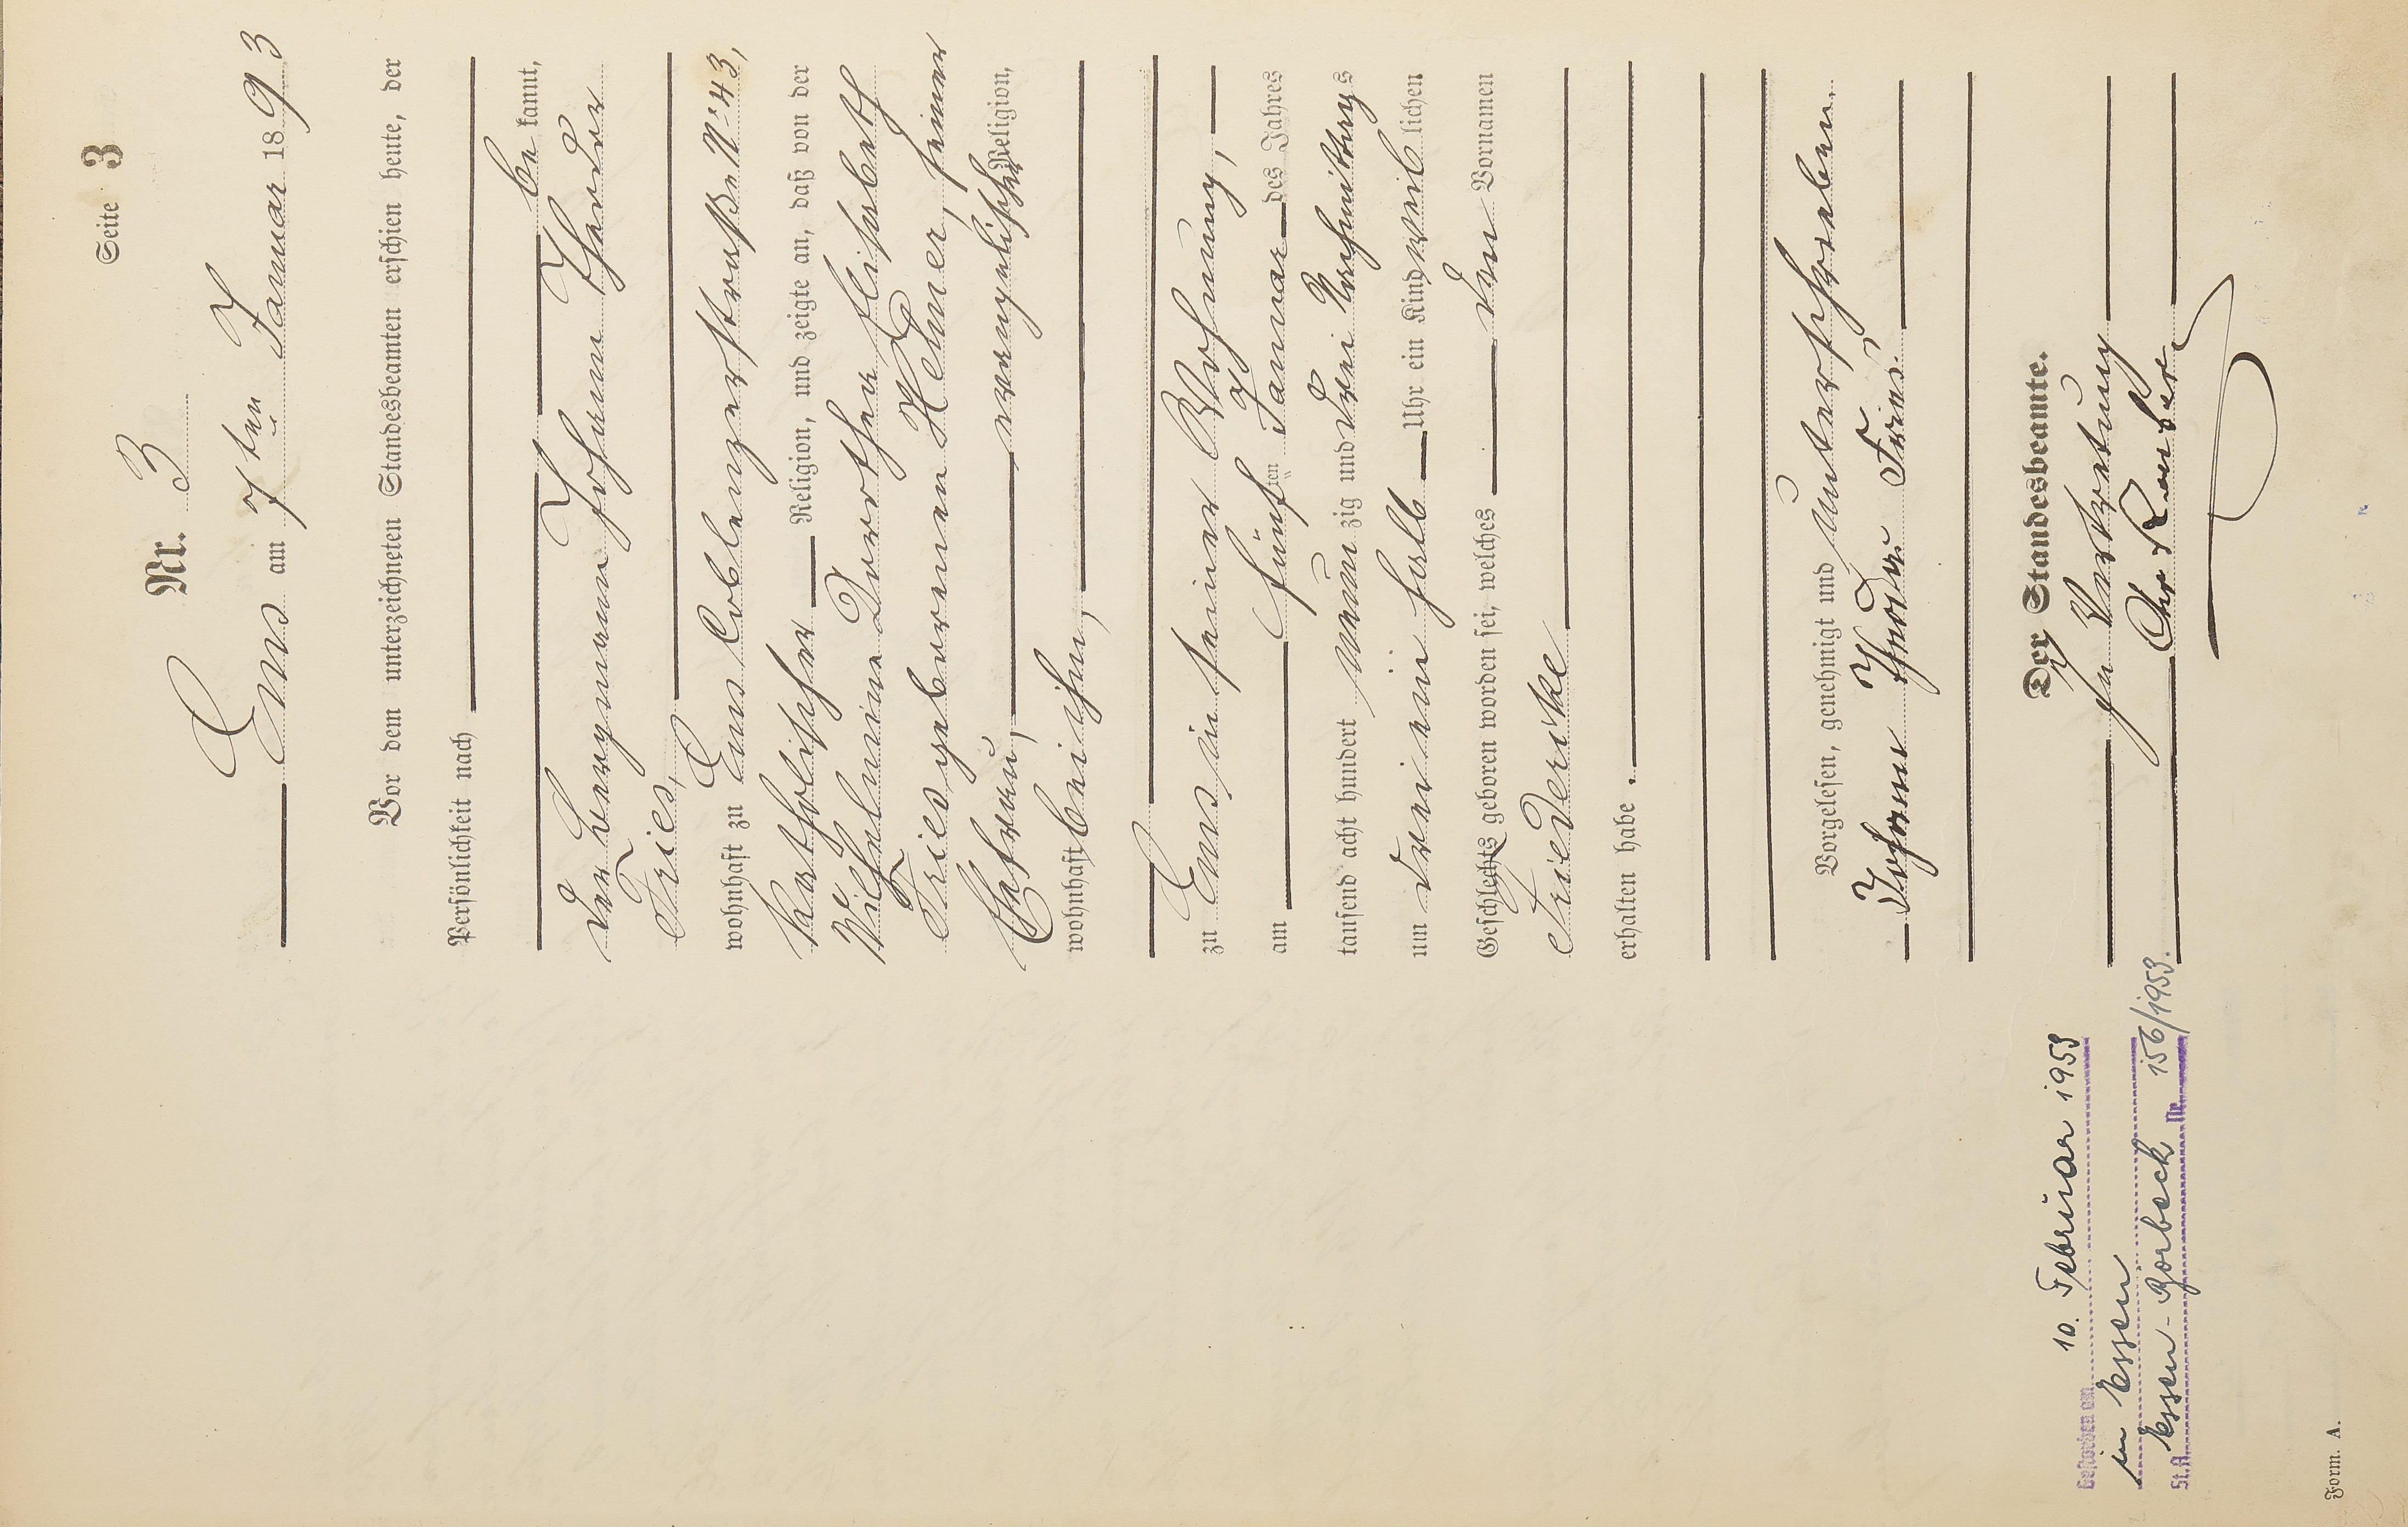 Seite 3
Nr. 3
Ems am 7ten Januar 1893
Vor dem unterzeichneten Standesbeamten erschien heute, der
Persönlichkeit nach
bekannt,
der Bergmann Johann Theodor
Fries,
wohnhaft zu Ems Coblenzerstraße No 43,
katholischer Religion, und zeigte an, daß von der
Wilhelmine Dorothea Elisabeth
Fries geborenen Helmer, seiner
Ehefrau, evangelischer Religion,
wohnhaft bei ihm,
zu Ems in seiner Wohnung,
am fünften Januar des Jahres
tausend acht hundert neunzig und drei Nachmittags
um drei ein halb Uhr ein Kind weiblichen
Geschlechts geboren worden sei, welches den Vornamen
Friederike
erhalten habe.
Vorgelesen, genehmigt und unterschrieben.
Johann Theodor Fries.
Der Standesbeamte.
In Vertretung
Chr
Gestorben am 10. Februar 1953
in Essen
St.A. Essen-Borbeck Nr. 156/1953.
Form. A.